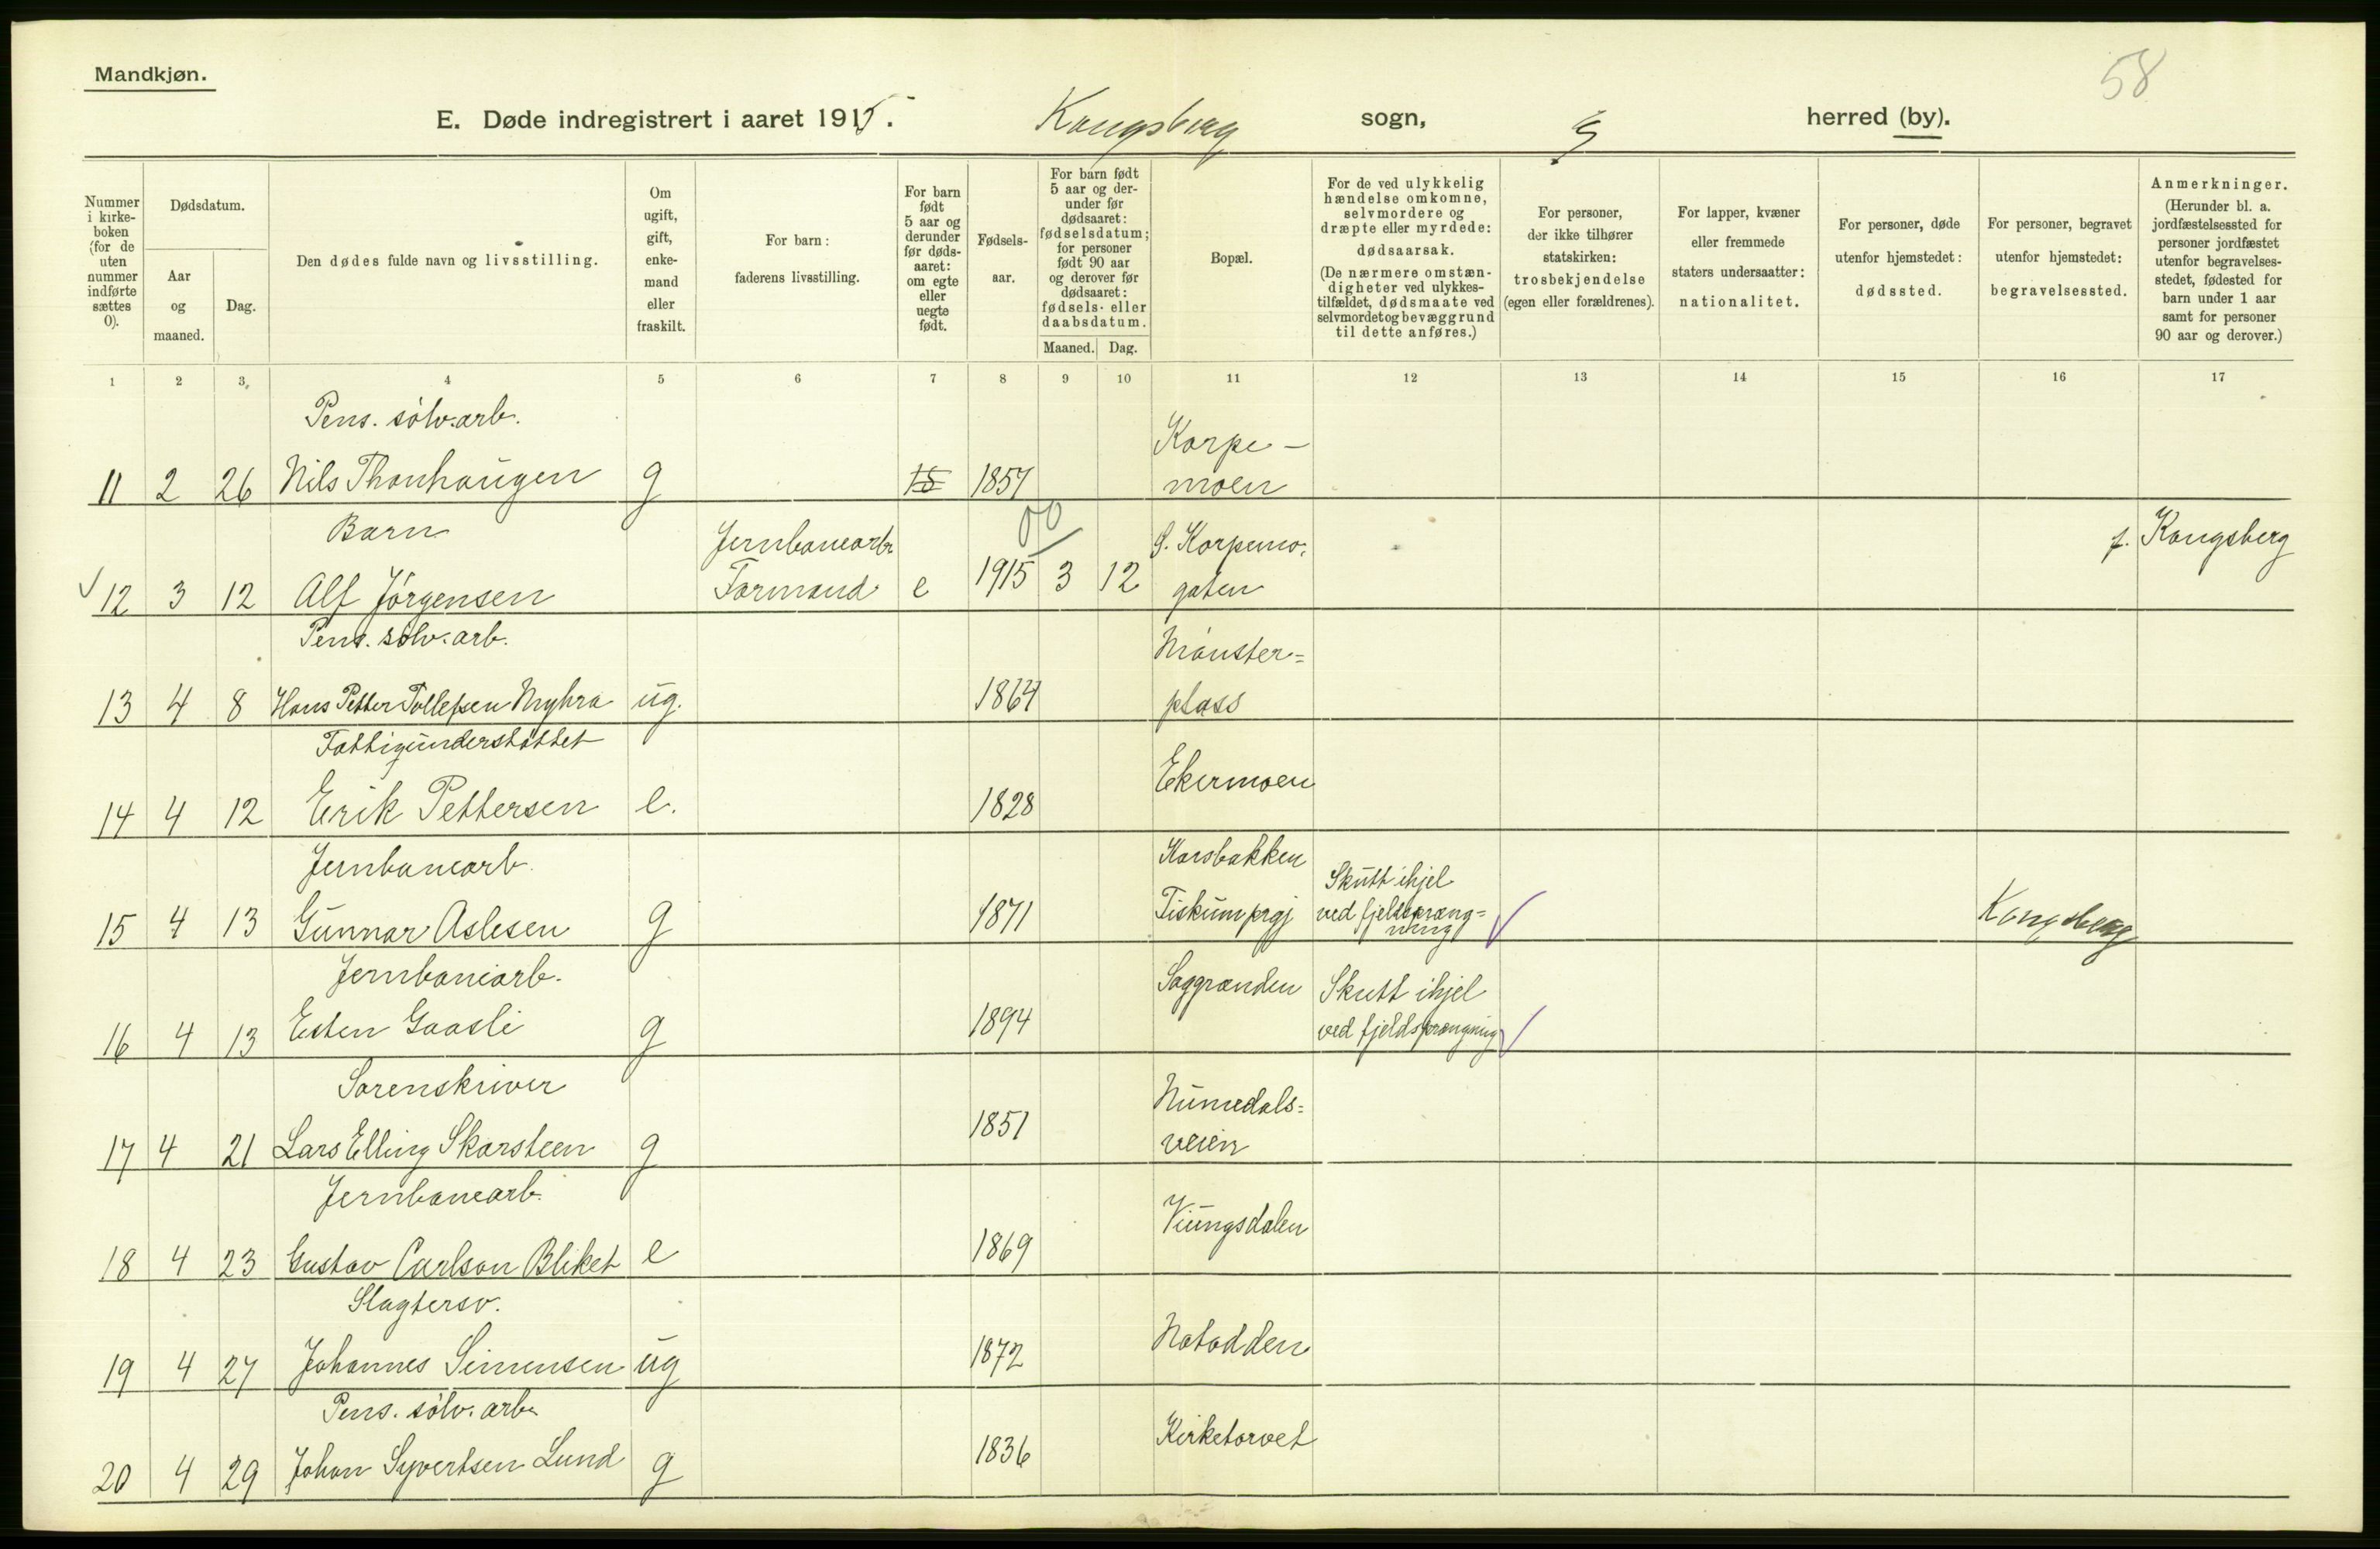 Mandkjøn.
58
E. Døde indregistrert i aaret 1915. Kongsberg sogn, herred (by).
Nummer i kirke- boken (for de uten nummer indførte sættes 0).
Dødsdatum.
Aar og maaned.
Dag.
Den dødes fulde navn og livsstilling.
Om ugift, gift, enke- mand eller fraskilt.
For barn: faderens livsstilling.
For barn født 5 aar og derunder før døds- aaret: om egte eller uegte født.
Fødsels- aar.
For barn født 5 aar og der- under før dødsaaret: fødselsdatum; for personer født 90 aar og derover før dødsaaret: fødsels- eller daabsdatum.
Maaned. Dag.
Bopæl.
For de ved ulykkelig hændelse omkomne, selvmordere og dræpte eller myrdede: dødsaarsak. (De nærmere omstæn- digheter ved ulykkes- tilfældet, dødsmaate ved selvmordet og bevæggrund til dette anføres.)
For personer, der ikke tilhører statskirken: trosbekjendelse (egen eller forældrenes).
For lapper, kvæner eller fremmede staters undersaatter: nationalitet.
For personer, døde utenfor hjemstedet: dødssted.
For personer, begravet utenfor hjemstedet: begravelsessted.
Anmerkninger. (Herunder bl. a. jordfæstelsessted for personer jordfæstet utenfor begravelses- stedet, fødested for barn under 1 aar samt for personer 90 aar og derover.)
1 2 3 4 5 6 7 8 9 10 11 12 13 14 15 16 17
Pens. sølv.arb. Korpe-
11 2 26 Nils Thonhaugen g 18 1857 moen
Barn Jernbanearb. 00 S. Korpemo. f. Kongsberg
12 3 12 Alf Jørgensen Formand e 1915 3 12 gaten
Pens. sølv.arb. Mønster=
13 4 8 Hans Petter Tollefsen Myhra ug. 1864 plass
Fattigunderstøttet Ekermoen
14 4 12 Erik Pettersen e. 1828
Jernbanearb. Korsbakken Skutt ihjel
15 4 13 Gunnar Aslesen g 1871 Fiskum prgj ved fjeldspræng= ning Kongsberg
Jernbanearb. Saggrenden Skutt ihjel
16 4 13 Esten Gaasli g 1894 ved fjeldsprængning
Sorenskriver Numedals=
17 4 21 Lars Elling Skarsteen g 1851 veien
Jernbanearb. Viungsdalen
18 4 23 Gustav Carlson Bliket e 1869
Slagtersv. Notodden
19 4 27 Johannes Simensen ug 1872
Pens. sølv. arb. Kirketorvet
20 4 29 Johan Syvertsen Lund g 1836